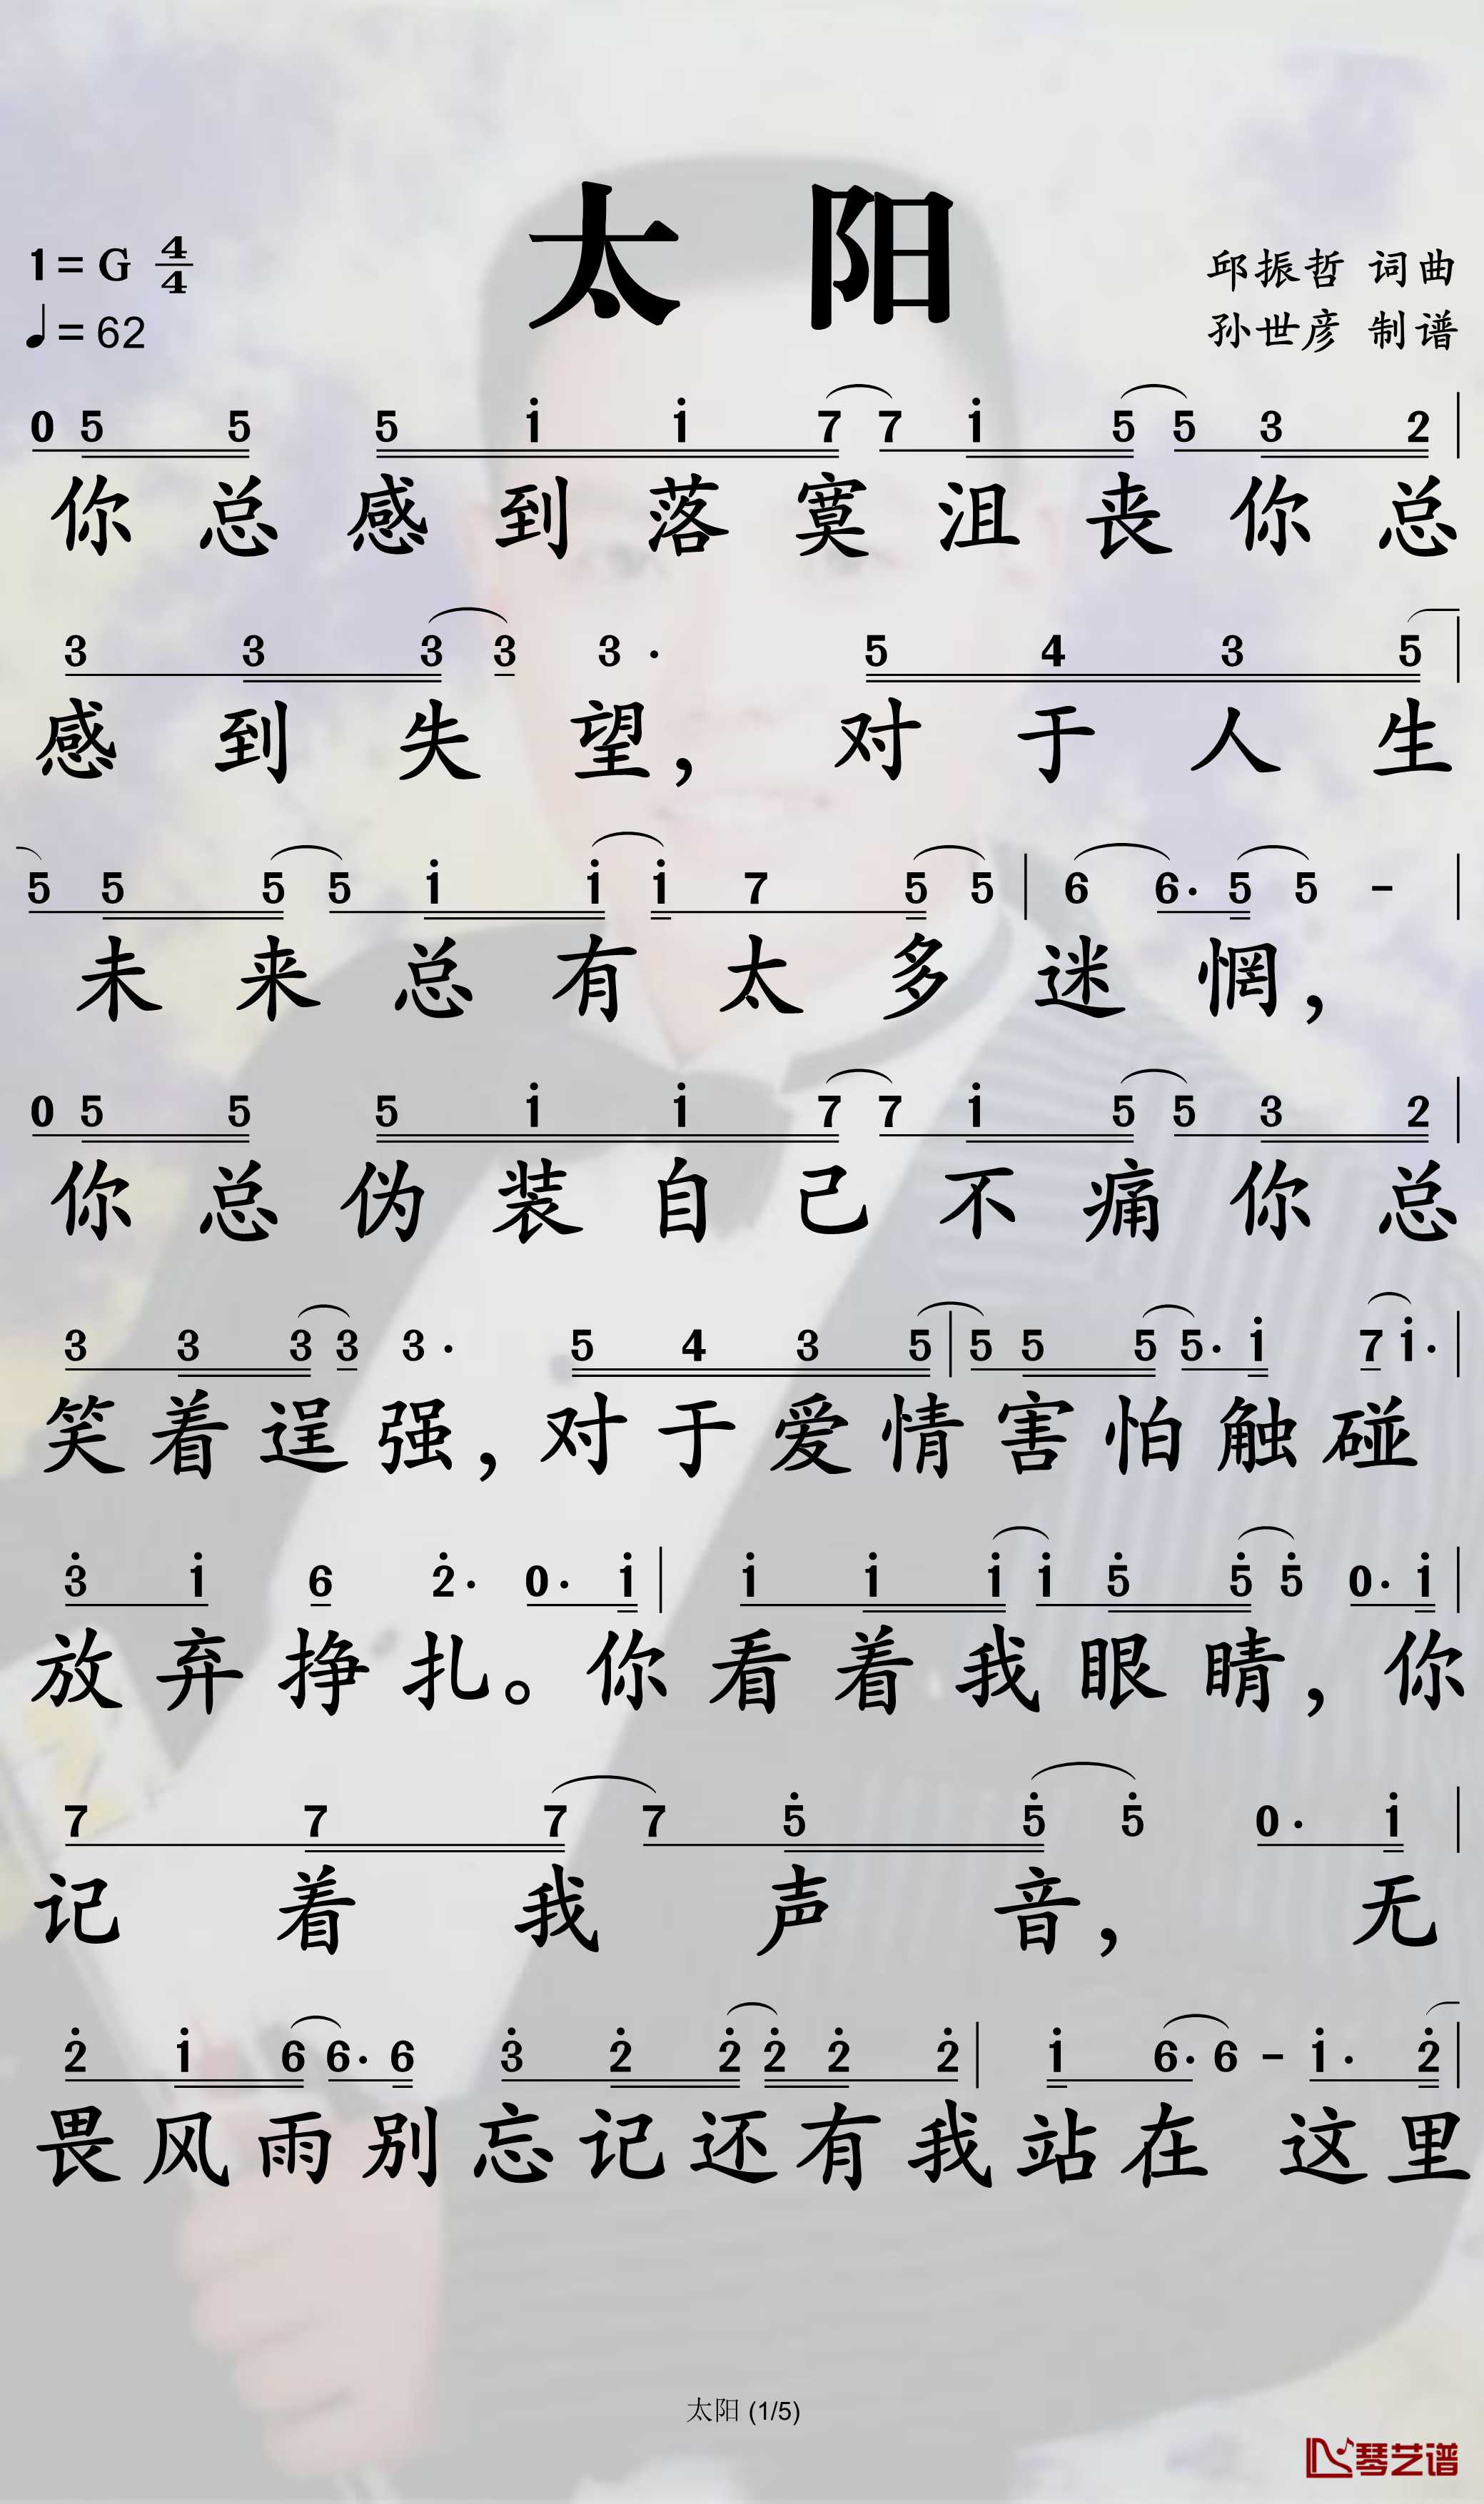 太 阳
1=G 4/4
♩=62
邱振哲 词曲
孙世彦 制谱
0 5 5 5 i i 7 7 i 5 5 3 2 |
你总感到落寞沮丧你总
3 3 3 3 3· 5 4 3 5 |
感到失望，对于人生
5 5 5 5 i i i 7 5 5 | 6 6· 5 5 - |
未来总有太多迷惘，
0 5 5 5 i i 7 7 i 5 5 3 2 |
你总伪装自己不痛你总
3 3 3 3 3· 5 4 3 5 | 5 5 5 5· i 7 i· |
笑着逞强，对于爱情害怕触碰
3̇ i 6 2̇· 0· i | i i i i 5̇ 5̇ 5̇ 0· i |
放弃挣扎。你看着我眼睛，你
7 7 7 7 5̇ 5̇ 5̇ 0· i |
记着我声音，无
2̇ i 6 6· 6 3̇ 2̇ 2̇ 2̇ 2̇ 2̇ | i 6· 6 - i· 2̇ |
畏风雨别忘记还有我站在 这里
太阳 (1/5)
琴艺谱